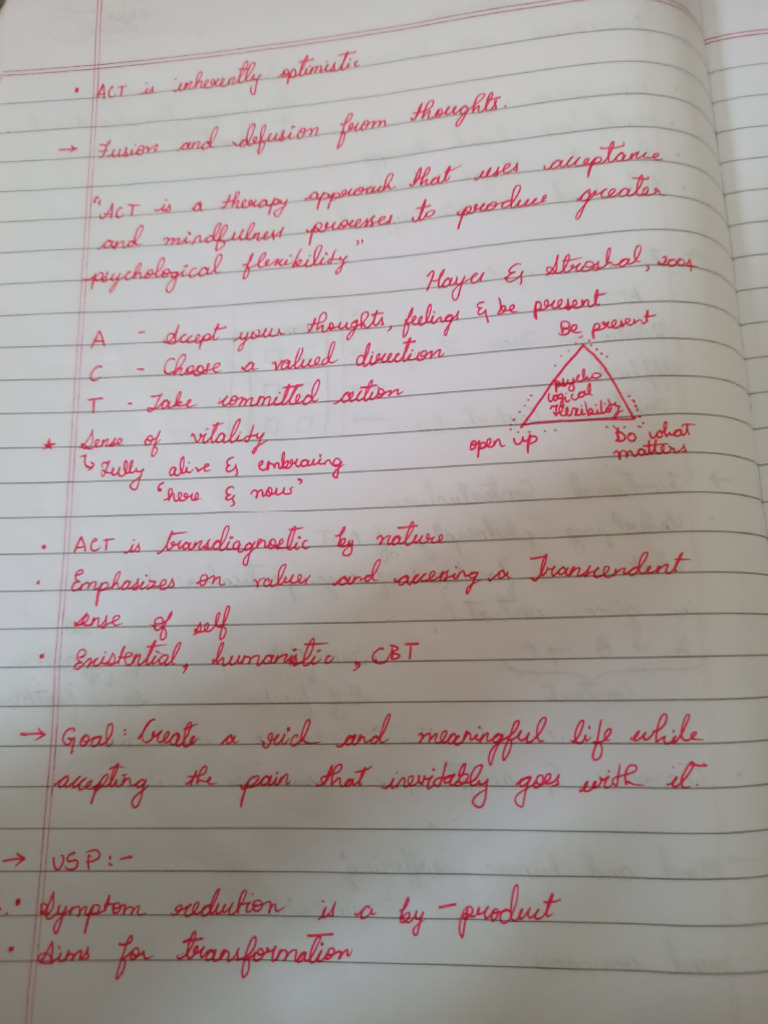 • ACT is inherently optimistic
→ Fusion and defusion from thoughts.
"ACT is a therapy approach that uses acceptance
and mindfulness processes to produce greater
psychological flexibility"
Hayes & Stroshal, 2004
A - Accept your thoughts, feelings & be present
C - Choose a valued direction
T - Take committed action
Be present
psycho
logical
flexibility
open up
Do what
matters
* Sense of vitality
↳ Fully alive & embracing
"here & now"
• ACT is transdiagnostic by nature
• Emphasizes on values and accessing a Transcendent
sense of self
• Existential, humanistic, CBT
→ Goal: Create a rich and meaningful life while
accepting the pain that inevitably goes with it.
→ USP:-
• Symptom reduction is a by-product
• Aims for transformation